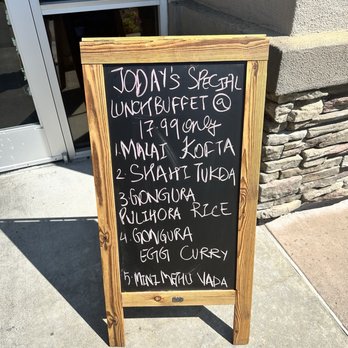 TODAY'S SPECIAL
LUNCH BUFFET @
17.99 only
1. MALAI KOFTA
2. SHAHI TUKDA
3 GONGURA
PULIHORA RICE
4. GONGURA
EGG CURRY
5. MINI METHU VADA